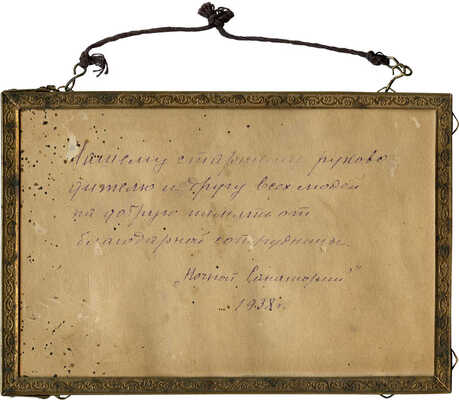 Нашему старшему руково-
дителю и другу всех людей
на добрую память от
благодарной сотрудницы.
„Ночной Санаторий"
1938 г.